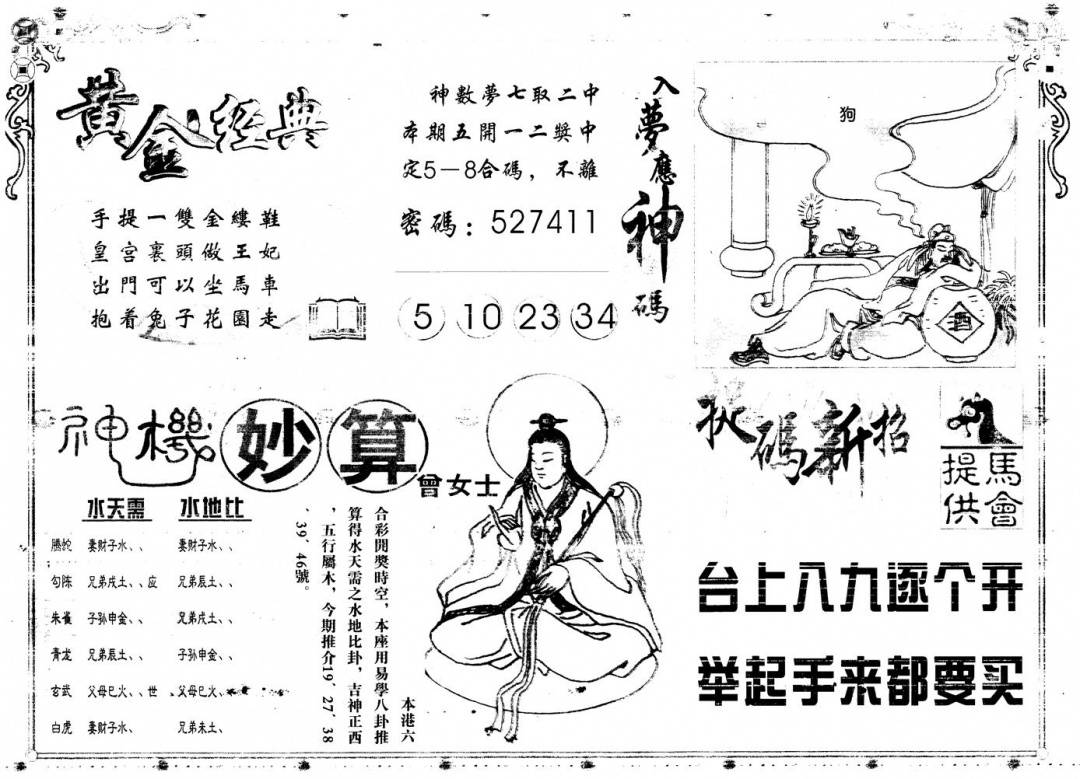 黃金經典
手提一雙金縷鞋
皇宮裏頭做王妃
出門可以坐馬車
抱着兔子花園走
神數夢七取二中
本期五開一二獎中
定5－8合碼，不離
密碼：527411
5 10 23 34
入夢應神碼
狗
酒
神機妙算
曾女士
水天需 水地比
螣蛇 妻財子水、、 妻财子水、、
勾陈 兄弟戌土、、应 兄弟辰土、、
朱雀 子孙申金、、 兄弟戌土、、
青龙 兄弟辰土、、 子孙申金、、
玄武 父母巳火、、世 父母巳火、、
白虎 妻财子水、 兄弟未土、
本港六
合彩開獎時空，本座用易學八卦推
算得水天需之水地比卦，吉神正西
，五行屬木，今期推介19′27′38
′39′46號。
狄碼新招
馬會
提供
台上八九逐个开
举起手来都要买